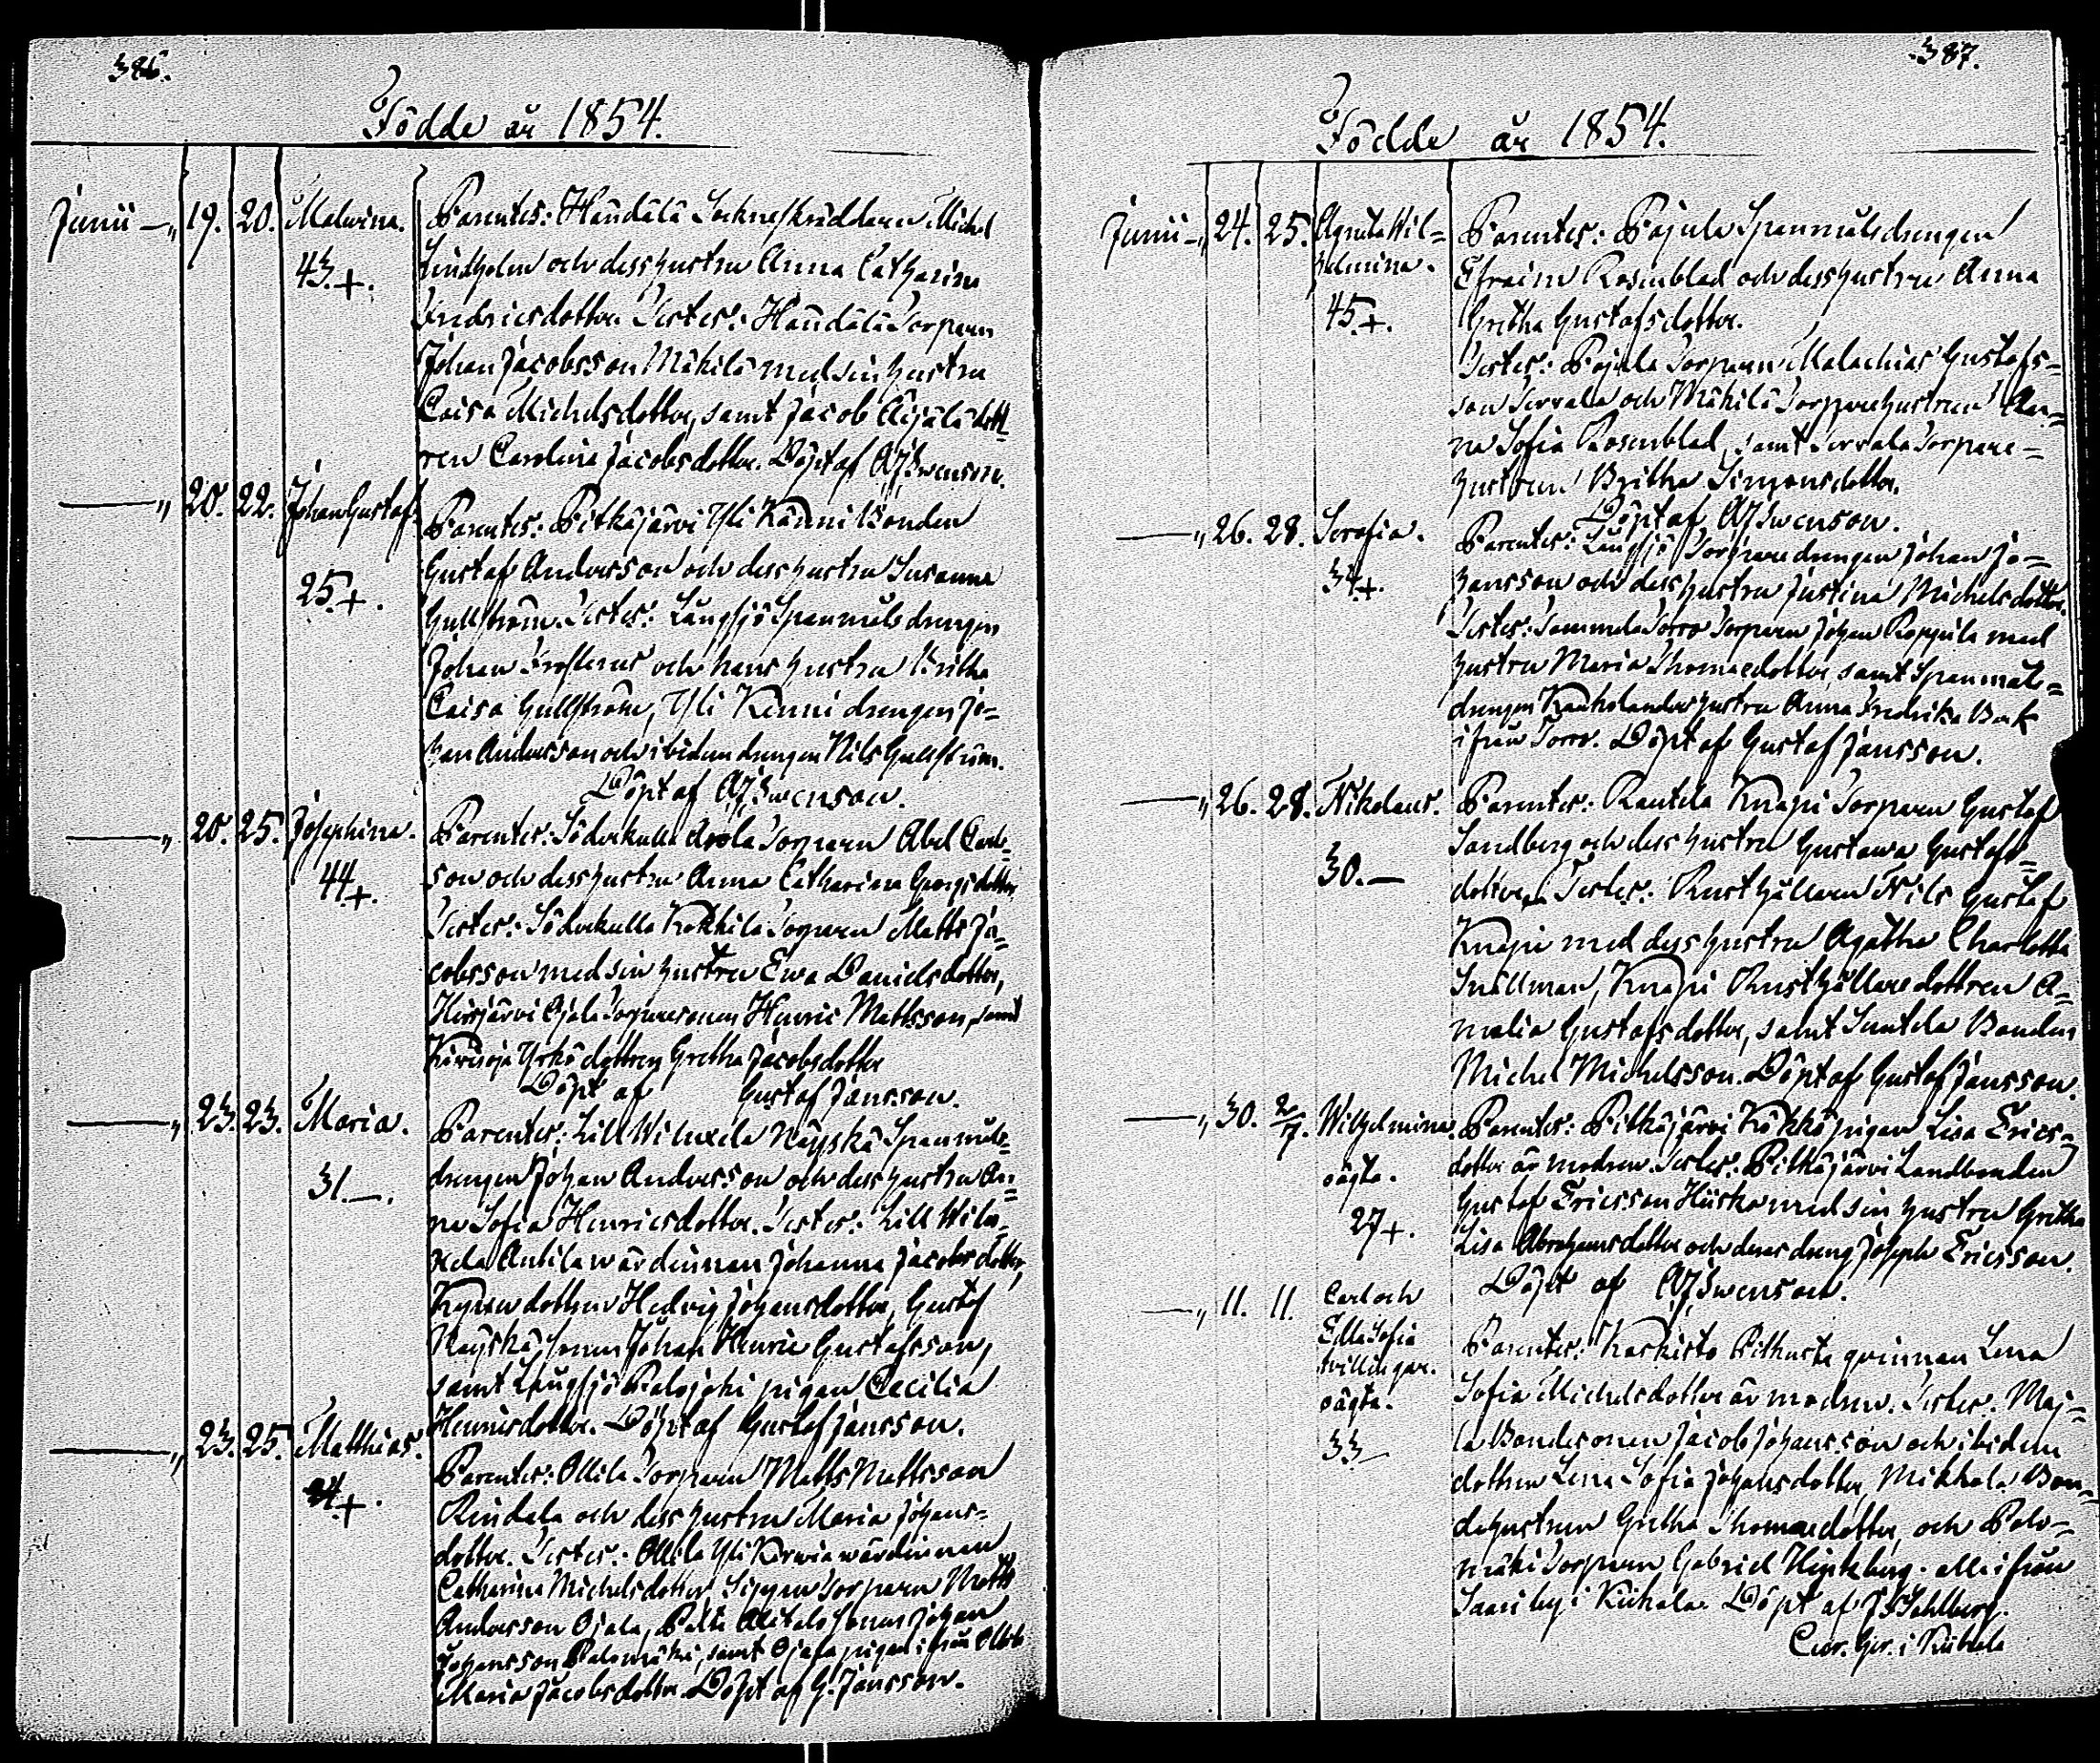 386.
Födde år 1854.
Junii — „ 19. 20. Malvina. Parentes: Händälä Sockneskräddaren Michel
43.+. Lindholm och dess hustru Anna Catharina
Fredricsdotter. Testes: Händälä Torparen
Johan Jacobsson Mäkilä med sin hustru
Caisa Michelsdotter, samt Jacob Äijälä dott-
ren Carolina Jacobsdotter. Döpt af AJSwenson.
— „ 20. 22. Johan Gustaf. Parentes: Pitkäjärvi Yli Känni Bonden
25.+. Gustaf Andersson och dess hustru Susanna
Gullström. Testes: Långsjö Spanmåls drengen
Johan Frosterus och hans hustru Britha
Caisa Gullström, Yli Kenni drengen Jo-
han Andersson och ibidem drengen Nils Gullström.
Döpt af AJSwenson.
— „ 20. 25. Josephina. Parentes: Söderkulla Arola Torparen Abel Carls-
44.+. son och dess hustru Anna Catharina Georgsdotter
Testes: Söderkulla Kokkila Torparen Matts Ja-
cobsson med sin hustru Ewa Danielsdotter,
Hirsjärvi Ojala Torparesonen Henric Mattsson, samt
Kärisoja Yrkö dottren Gretha Jacobsdotter
Döpt af Gustaf Jansson.
— „ 23. 23. Maria. Parentes: Lill Wiluxela Näyskä Spanmåls-
31.—. drengen Johan Andersson och dess hustru An-
na Sofia Henricsdotter. Testes: Lill Wilu-
xela Antila wärdinnan Johanna Jacobsdotter,
dottren Hedvig Johansdotter, Gustaf
Näyskä sonen Johan Henric Gustafsson,
samt Långsjö Palojoki pigan Cecilia
Henricsdotter. Döpt af Gustaf Jansson.
— „ 23. 25. Matthias. Parentes: Ollila Torparen Matts Mattsson
+. Rindala och dess hustru Maria Johans-
dotter. Testes: Ollila Yli Kerwia wärdinnan
Catharina Michelsdotter, Torparen Matts
Andersson Ojala, sonen Johan
Johansson Palomäki, samt Ojala pigan ifrån Ollila
Maria Jacobsdotter. Döpt af G. Jansson.
387.
Födde år 1854.
Junii — „ 24. 25. Agneta Wil- Parentes: Pajula Spanmåls drengen
helmina. Efraim Rosenblad och dess hustru Anna
45.+. Gretha Gustafsdotter.
Testes: Pajula Torparen Malachias Gustafs-
son Terrala och Mäkilä Torparehustrun An-
na Sofia Rosenblad, samt Terrala Torpare-
hustrun Britha Simonsdotter.
Döpt af AJSwenson.
— „ 26. 28. Serafia. Parentes: Långsjö Torparedrengen Johan Jo-
34.+. hansson och dess hustru Justina Michelsdotter.
Testes: Sammela Torro Torparen Johan Roppila med
hustru Maria Thomaedotter, samt Spanmåls-
drengen hustru Anna Fredrika Bock
ifrån Torro. Döpt af Gustaf Jansson.
— „ 26. 28. Nikolaus. Parentes: Rautela Knapi Torparen Gustaf
30.— Sandberg och dess hustru Gustawa Gustafs-
dotter. Testes: Rusthållaren Nils Gustaf
Knapi med dess hustru Agatha Charlotta
Snällman, Knapi Rusthållare dottren A-
malia Gustafsdotter, samt Suutela Bonden
Michel Michelsson. Döpt af Gustaf Jansson.
— „ 30. 2/7. Wilhelmina. Parentes: Pitkäjärvi Kökkö pigan Lisa Erics-
oägta. dotter är modren. Testes: Pitkäjärvi Landbonden
27+. Gustaf Ericsson Hiiska med sin hustru Gretha
Lisa Abrahamsdotter och deras dreng Joseph Ericsson.
Döpt af AJSwenson.
— „ 11. 11. Carl och Parentes: Karkisto Pitkusta qvinnan Lena
Edla Sofia Sofia Michelsdotter är modren. Testes: Maj-
tvillingar. la Bondesonen Jacob Johansson och ibidem
oägta. dottren Lena Sofia Johansdotter, Mikkola Bon-
33— dehustrun Gretha Thomaedotter, och Palo-
mäki Torparen Gabriel Hintzberg. alla ifrån
Saari by i Kiikala. Döpt af Dahlberg.
Cur. Gir. i Kiikala